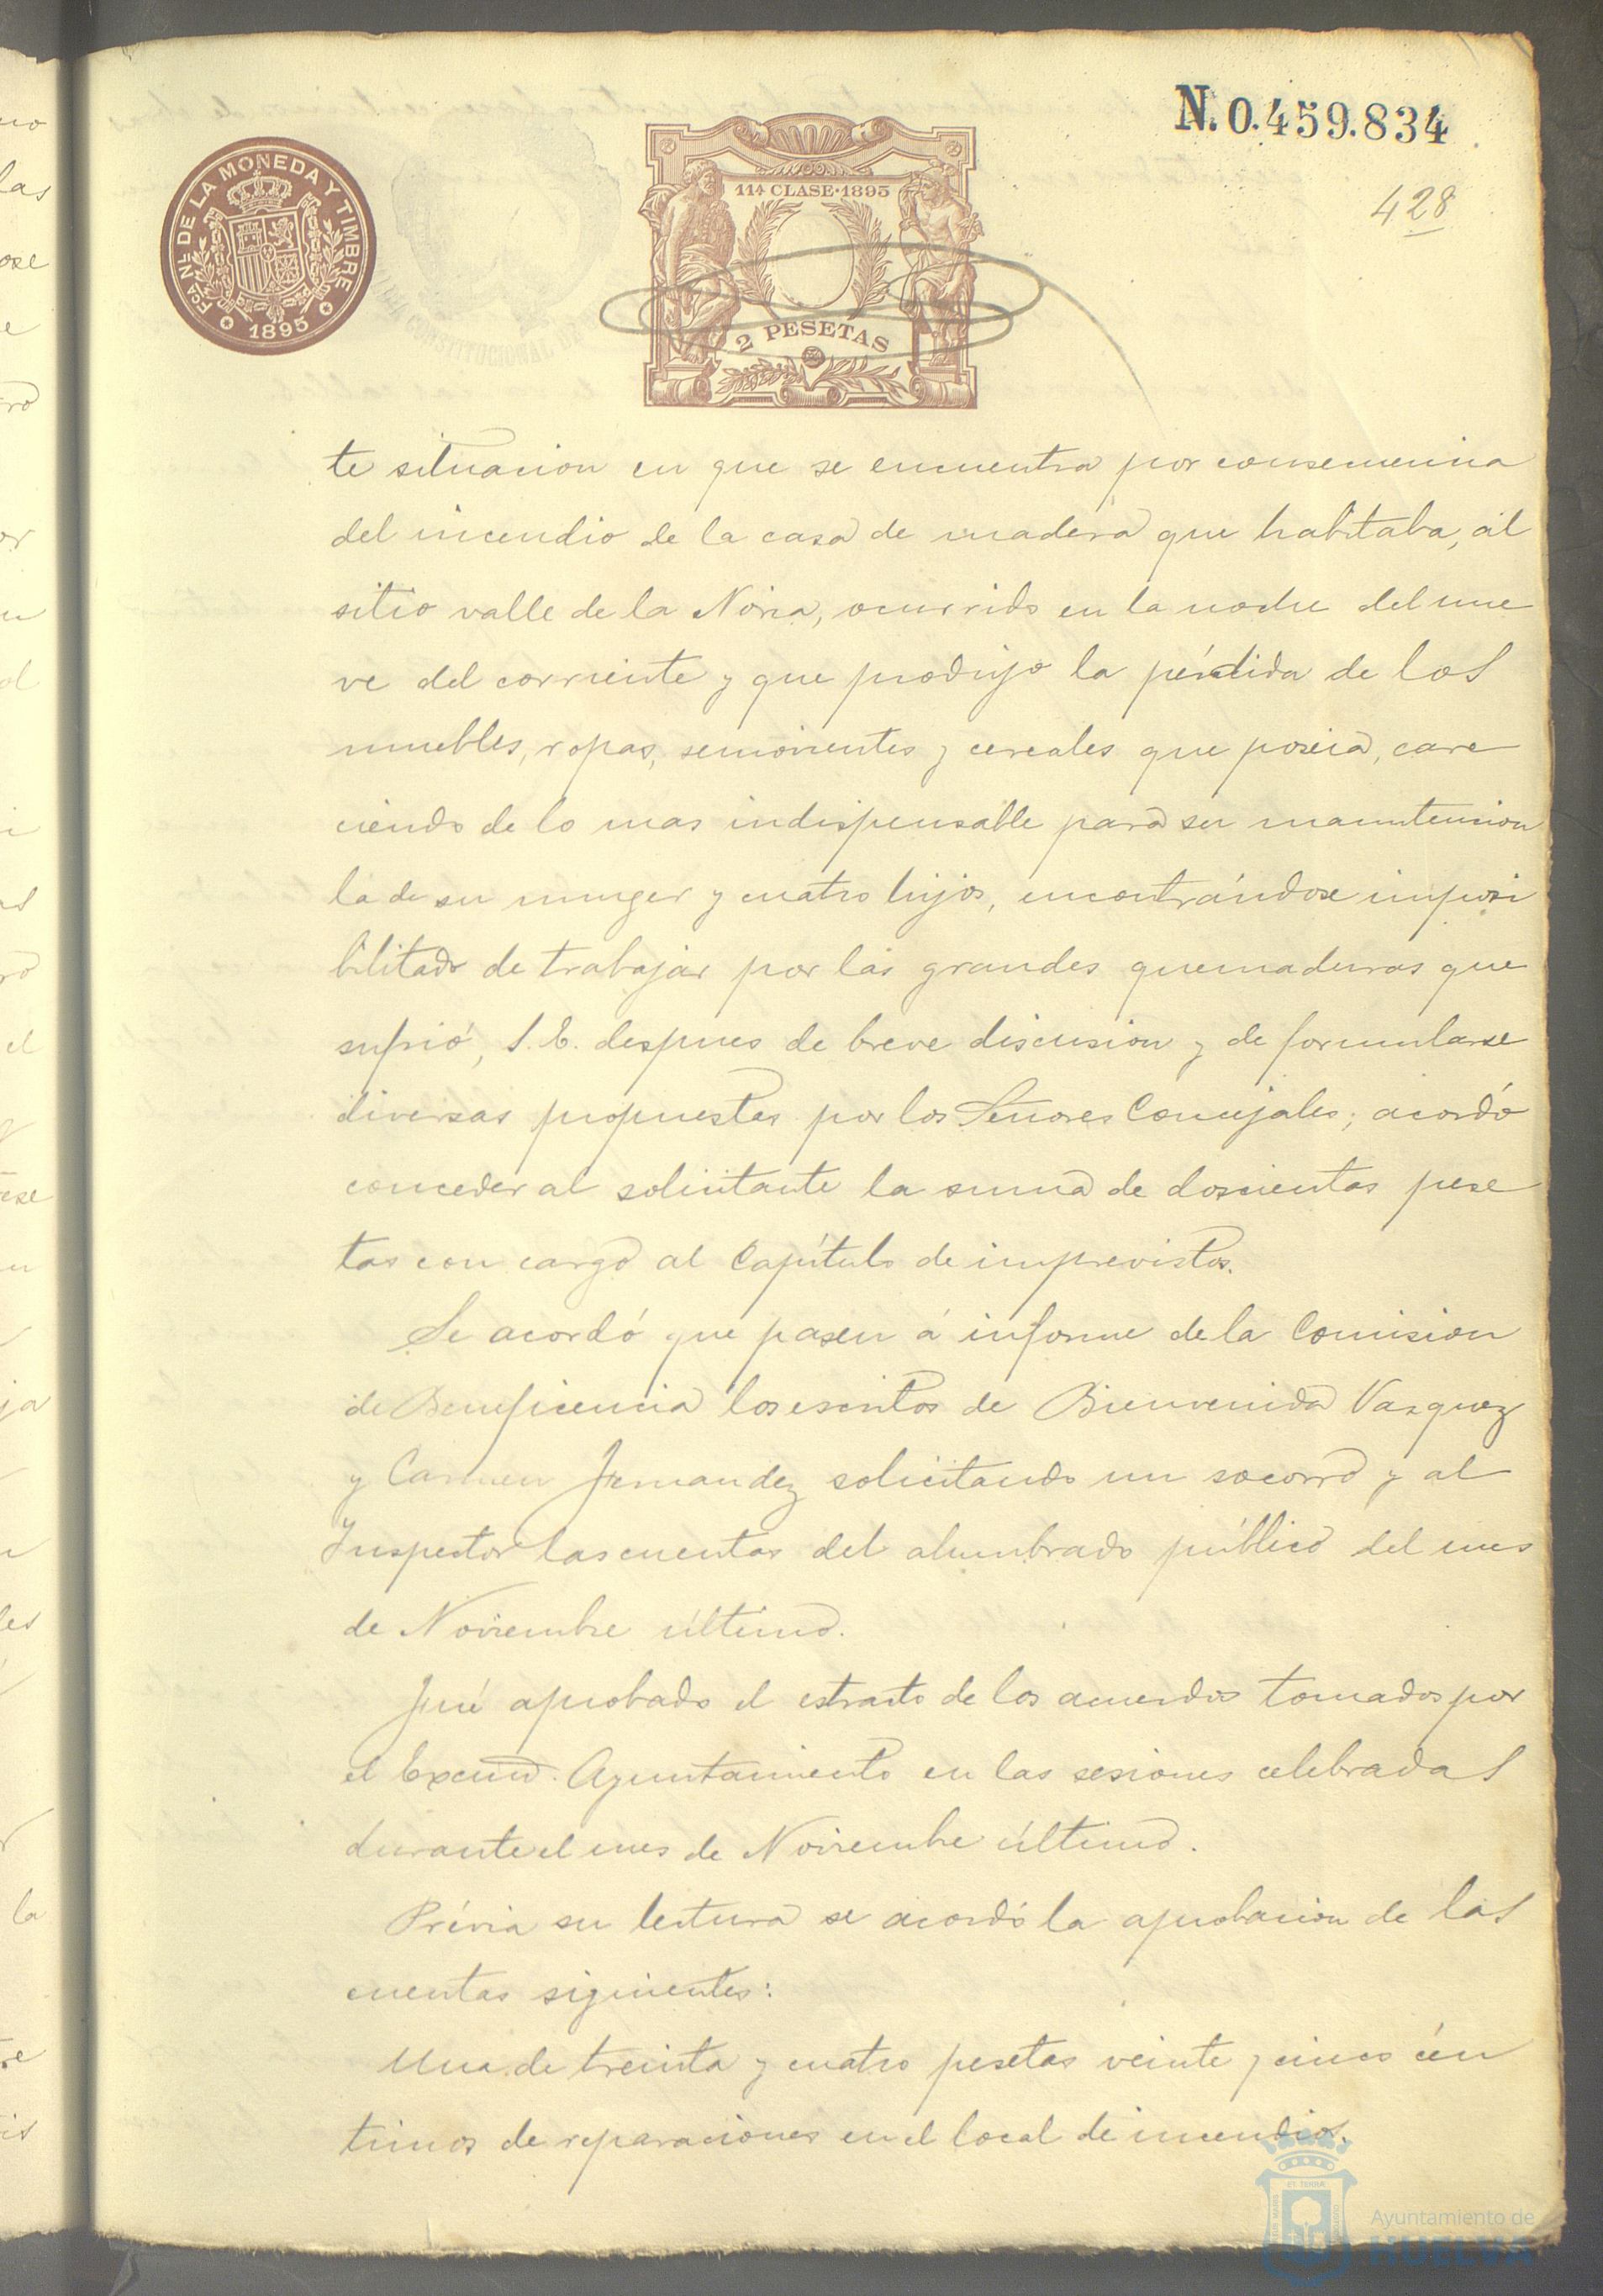 N. 0.459.834
428
FCA NL DE LA MONEDA Y TIMBRE
1895
11ª CLASE·1895
2 PESETAS
CONSTITUCIONAL DE
te situacion en que se encuentra por consecuencia
del incendio de la casa de madera que habitaba, al
sitio valle de la Noria, ocurrido en la noche del nue
ve del corriente y que produjo la pérdida de los
muebles, ropas, semovientes y cereales que poseia, care
ciendo de lo mas indispensable para su manutencion
la de su muger y cuatro hijos, encontrándose imposi
bilitado de trabajar por las grandes quemaduras que
sufrió, S. E. despues de breve discusion y de formularse
diversas propuestas por los Señores Concejales; acordó
conceder al solicitante la suma de doscientas pese
tas con cargo al Capítulo de imprevistos.
Se acordó que pasen á informe de la Comision
de Beneficencia los escritos de Bienvenida Vazquez
y Carmen Fernandez solicitando un socorro y al
Inspector las cuentas del alumbrado público del mes
de Noviembre último.
Fué aprobado el estracto de los acuerdos tomados por
el Excmo. Ayuntamiento en las sesiones celebradas
durante el mes de Noviembre último.
Prévia su lectura se acordó la aprobacion de las
cuentas siguientes:
Una de treinta y cuatro pesetas veinte y cinco cén
timos de reparaciones en el local de incendios.
Ayuntamiento de
HUELVA